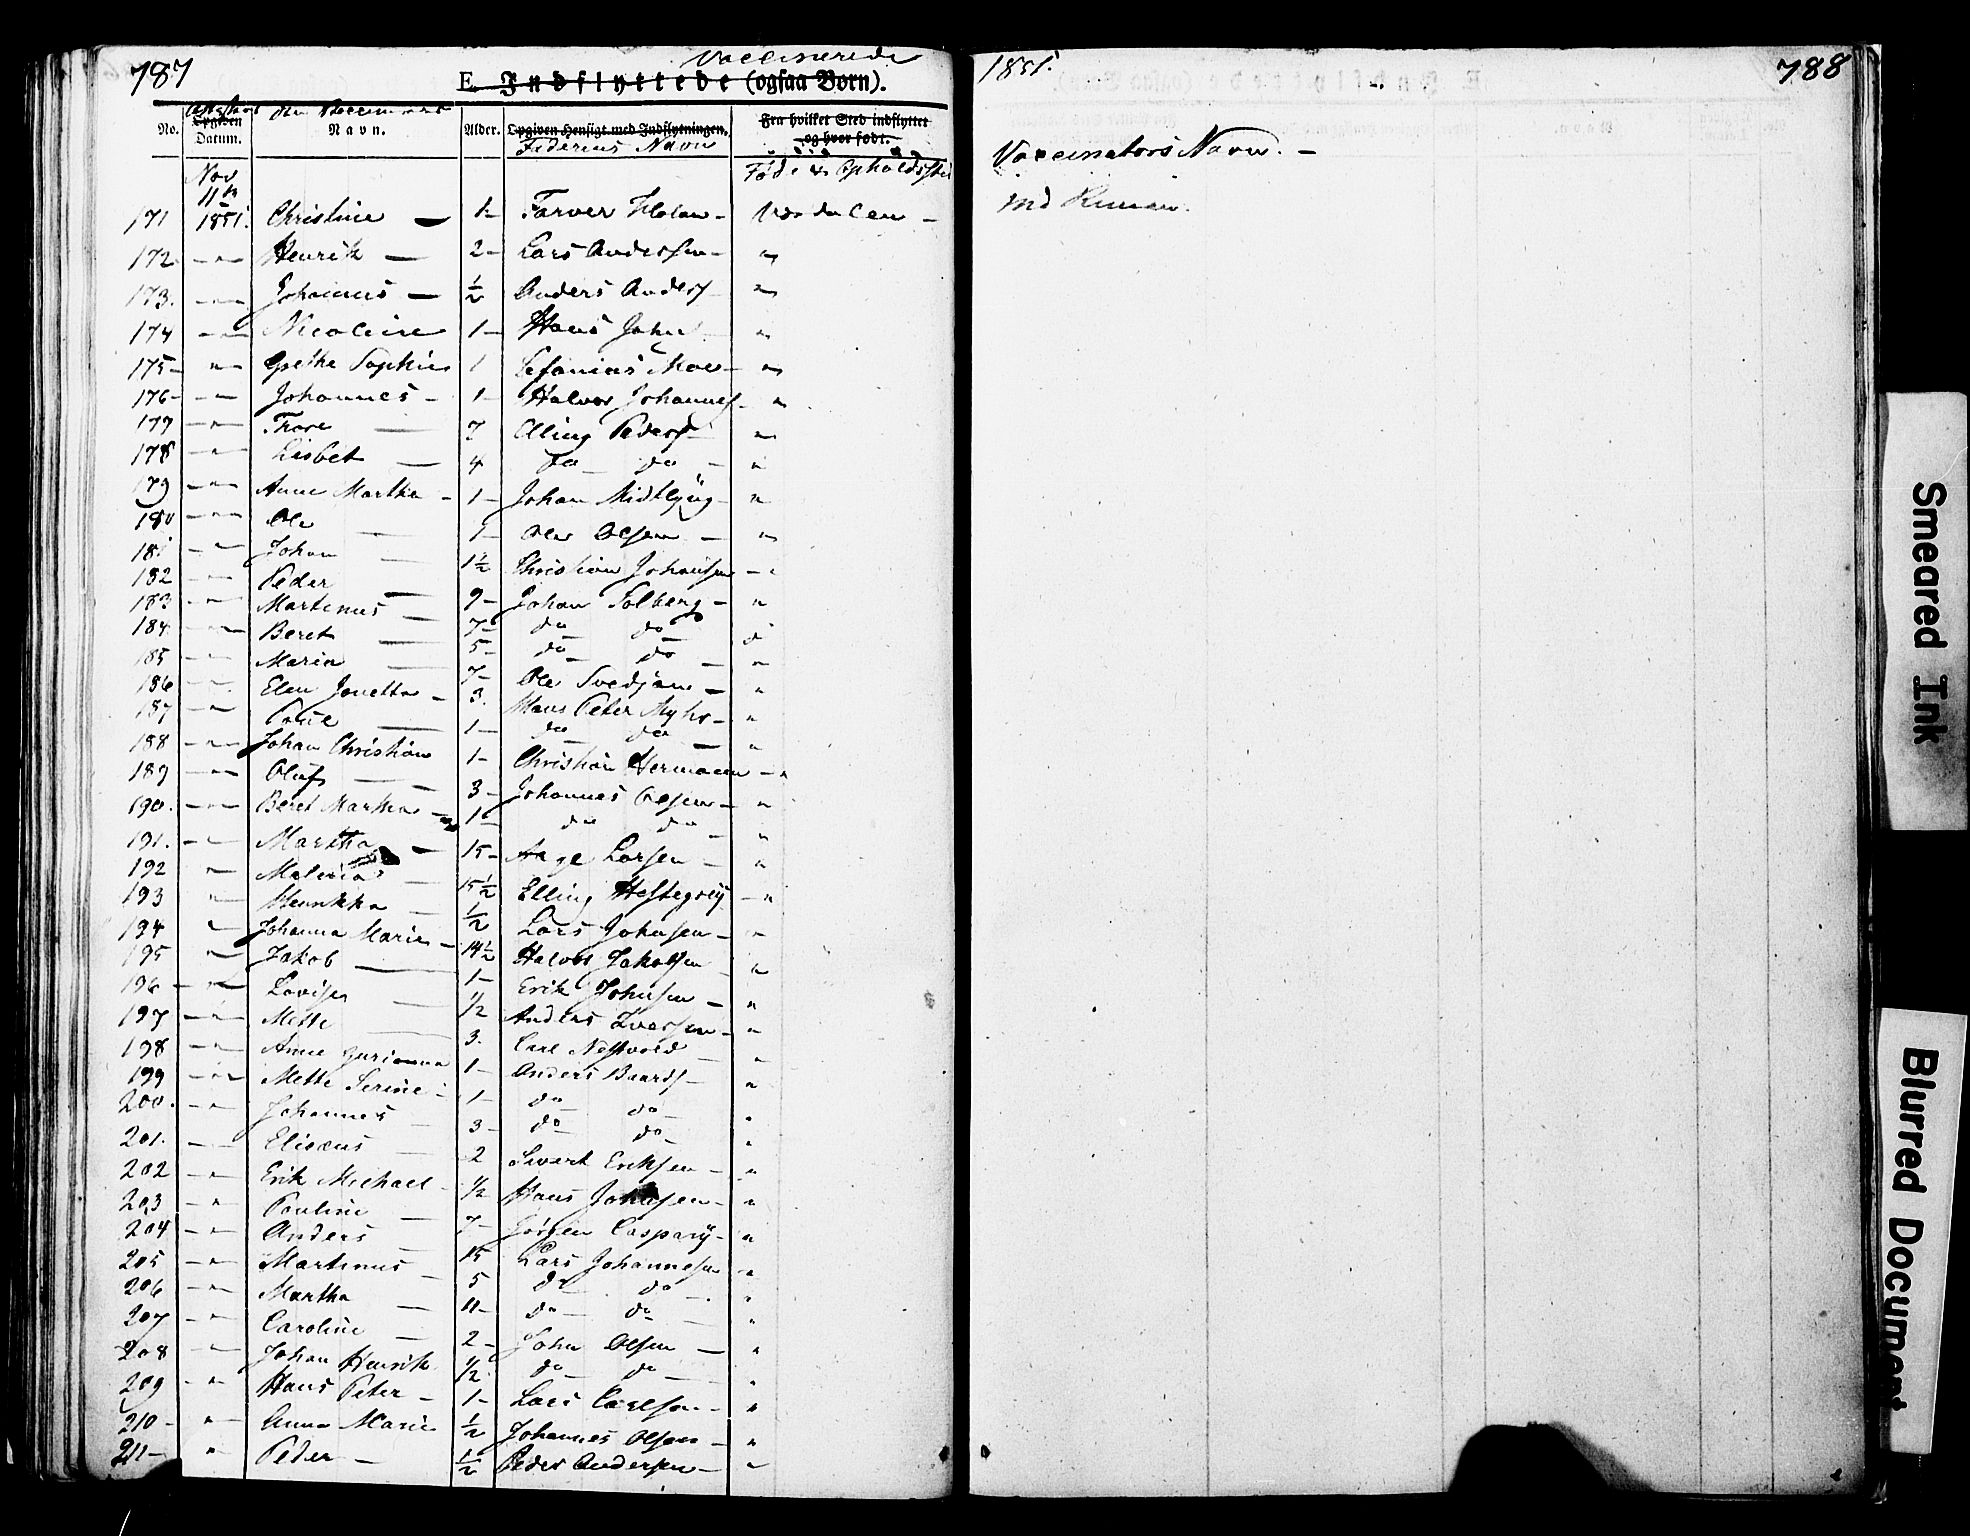 787
Vaccinerede
E. Indflyttede (ogsaa Børn).
No. Opgiven Datum. Navn. Alder. Opgiven Hensigt med Indflytningen. Fra hvilket Sted indflyttet og hvor født.
Attestens den Vaccineredes
Faderens Navn
Føde og Opholdssted
Nov
11te
171 1851. Christine — 1- Farver Holan - Værdalen -
172 - " - Henrik — 2- Lars Andersen - "
173. - " - Johannes — ½ Anders Anders "
174 - " - Nicoline 1- Hans John "
175- " - Grethe Sophie 1 Zefanias Moe - "
176- - " - Johannes - 1- Halvor Johannes - "
177 - " - Thore — 7 Elling Peders "
178 " - Lisbet — 4 do do - "
179 - " - Anne Martha - 1- Johan Midtlyng - "
180 - " - Ole — 1- Ole Olsen - "
181 - " - Johan — 1½ Christian Johansen - "
182 - " - Peder —
183 - " - Martinus — 9- Johan Solberg - "
184 - " - Beret — 7- do do "
185 - " - Maria — 5- do do - "
186 - " - Elen Jonetta - 7- Ole Svedjan - "
187 - " - Poul — 3. Hans Peter Myhr - "
188 - " - Johan Christian 1- do do — "
189 - " - Oluf — 1- Christian Hermann - "
190. - " - Beret Martha - 3- Johannes Olsen - "
1- do do - "
191. - " Martha — 15- Aage Larsen - "
192 " - Maleria — 15½ Elling Hestegrei - "
193 " - Henrikka - ½ Lars Johnsen - "
194 " - Johanna Marie - 14½ Halvor Jakobsen "
195 " - Jakob — 1- Erik Johnsen - "
196 - " - Lovise — ½ Anders Iversen - "
197 - " - Mette — 3. Carl Nessvold - "
198 - " - Anne Gurianna 1- Anders Baards - "
199 - " - Mette Serine - 1- do do - "
200. - " - Johannes - 3- do do - "
201. - - Elizeus - 2 Sivert Eriksen - "
202 - " - Erik Michael ½ Hans Johnsen - "
203 - " - Pauline — 7- Jørgen Caspary - "
204 - " - Anders - 15 Lars Johannesen - "
205 - " - Martinus - 5 do do - "
206 - " - Martha — 11- do do - "
207 - " - Caroline — 2- John Olsen — "
208 - " - Johan Henrik ½ do do - "
209 - " - Hans Peter - 1- Lars Carlsen - "
210 - " - Anna Marie ½ Johannes Olsen - "
211 - " Peder - ½ Peder Andersen - "
1851.
788
Vaccinators Navn. -
Smeared Ink
Blurred Document